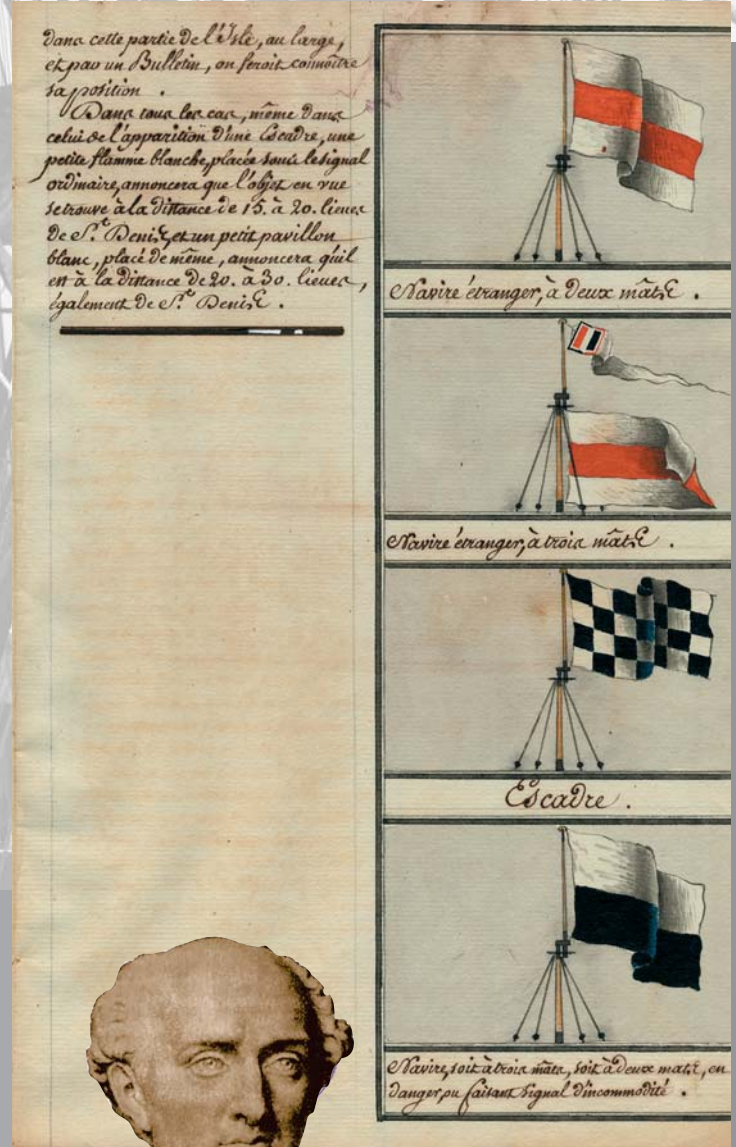 dans cette partie de l'Isle, au large,
et par un Bulletin, on feroit connoître
sa position .
Dans tous les cas, même dans
celui de l'apparition d'une Escadre, une
petite flamme blanche, placée sous le signal
ordinaire, annoncera que l'objet en vue
se trouve à la distance de 15. à 20. lieues
de St. Denis, et un petit pavillon
blanc, placé de même, annoncera qu'il
est à la distance de 20. à 30. lieues,
également de St. Denis .
Navire étranger, à deux mâts .
Navire étranger, à trois mâts .
Escadre .
Navire, soit à trois mâts, soit à deux mats, en
danger, ou faisant signal d'incommodité .